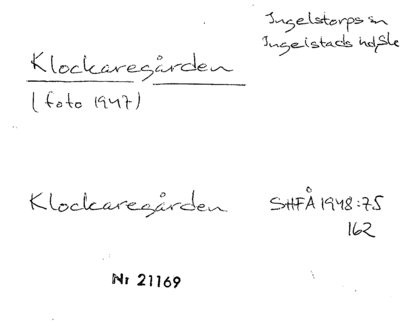 Ingelstorps sn
Ingelstads hd, Sk
Klockaregården
(foto 1947)
Klockaregården
SHFÅ 1948:75
162
Nr 21169